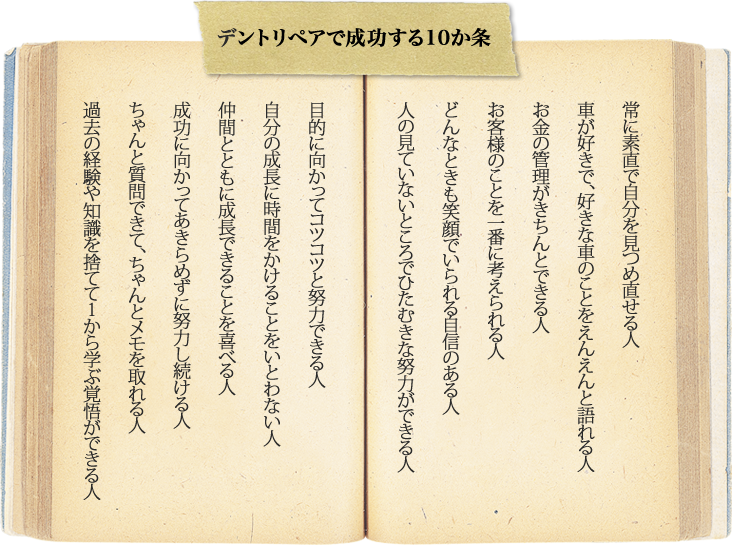 デントリペアで成功する10か条
常に素直で自分を見つめ直せる人
車が好きで、好きな車のことをえんえんと語れる人
お金の管理がきちんとできる人
お客様のことを一番に考えられる人
どんなときも笑顔でいられる自信のある人
人の見ていないところでひたむきな努力ができる人
目的に向かってコツコツと努力できる人
自分の成長に時間をかけることをいとわない人
仲間とともに成長できることを喜べる人
成功に向かってあきらめずに努力し続ける人
ちゃんと質問できて、ちゃんとメモを取れる人
過去の経験や知識を捨てて1から学ぶ覚悟ができる人